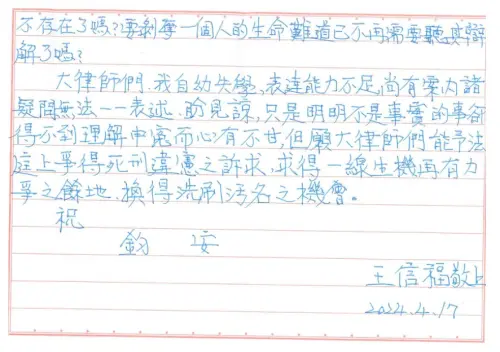 不存在了嗎?要剝奪一個人的生命難道已不再需要聽其辯
解了嗎?
大律師們,我自幼失學,表達能力不足尚有案內諸
疑問無法一一表述,盼見諒,只是明明不是事實的事卻
得不到理解申冤而心有不甘,但願大律師們能予法
庭上爭得死刑違憲之訴求,求得一線生機再有力
爭之餘地,換得洗刷污名之機會。
祝
鈞 安
王信福敬上
2024.4.17